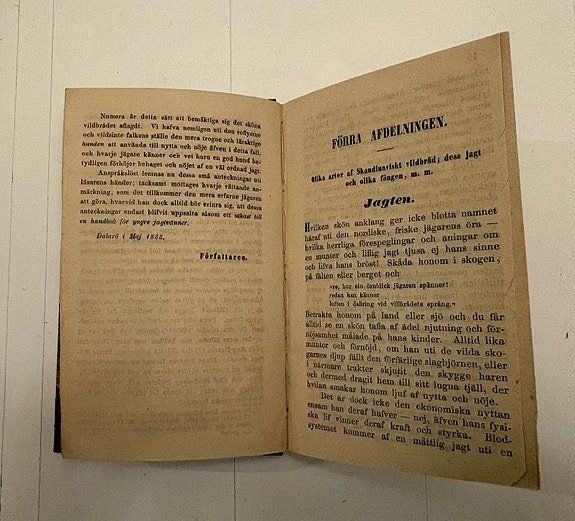 Numera är detta sätt att bemäktiga sig det sköna
vildbrådet aflagdt. Vi hafva nemligen uti den roflystne
och vildsinte falkens ställe den mera trogne och läraktige
hunden att använda till nytta och nöje äfven i detta fall,
och hvarje jägare känner och vet huru en god hund be-
tydligen förhöjer behaget och nöjet af en väl ordnad jagt.
Anspråkslöst lemnas nu dessa små anteckningar uti
läsarens händer; tacksamt mottages hvarje rättande an-
märkning, som det tillkommer den mera erfarne jägaren
att göra, hvarvid han dock alltid bör erinra sig, att dessa
anteckningar endast blifvit uppsatta såsom ett utkast till
en handbok för yngre jagtvänner.
Dalarö i Maj 1855.
Författaren.
FÖRRA AFDELNINGEN.
Olika arter af Skandinaviskt vildbråd; dess jagt
och olika fängen, m. m.
Jagten.
Hvilken skön anklang ger icke blotta namnet
häraf uti den nordiske, friske jägarens öra —
hvilka herrliga förespeglingar och aningar om
en munter och liflig jagt tjusa ej hans sinne
och lifva hans bröst! Skåda honom i skogen,
på fälten eller berget och
vre, hur sin örnblick jägaren spänner!
redan han känner
luften i dallring vid villbrådets språng.»
Betrakta honom på land eller sjö och du får
alltid se en skön tafla af ädel njutning och för-
nöjsamhet målade på hans kinder. Alltid lika
munter och förnöjd, om han uti de vilda sko-
garnes djup fällt den förfärlige slagbjörnen, eller
i närmare trakter skjutit den skygge haren
och dermed dragit hem till sitt lugna tjäll, der
hvilan smakar honom ljuf af nytta och nöje.
Det är dock icke den ekonomiska nyttan
ensam han deraf hafver — nej, äfven hans fysi-
ska lif vinner deraf kraft och styrka. Blod-
systemet kommer af en måttlig jagt uti en